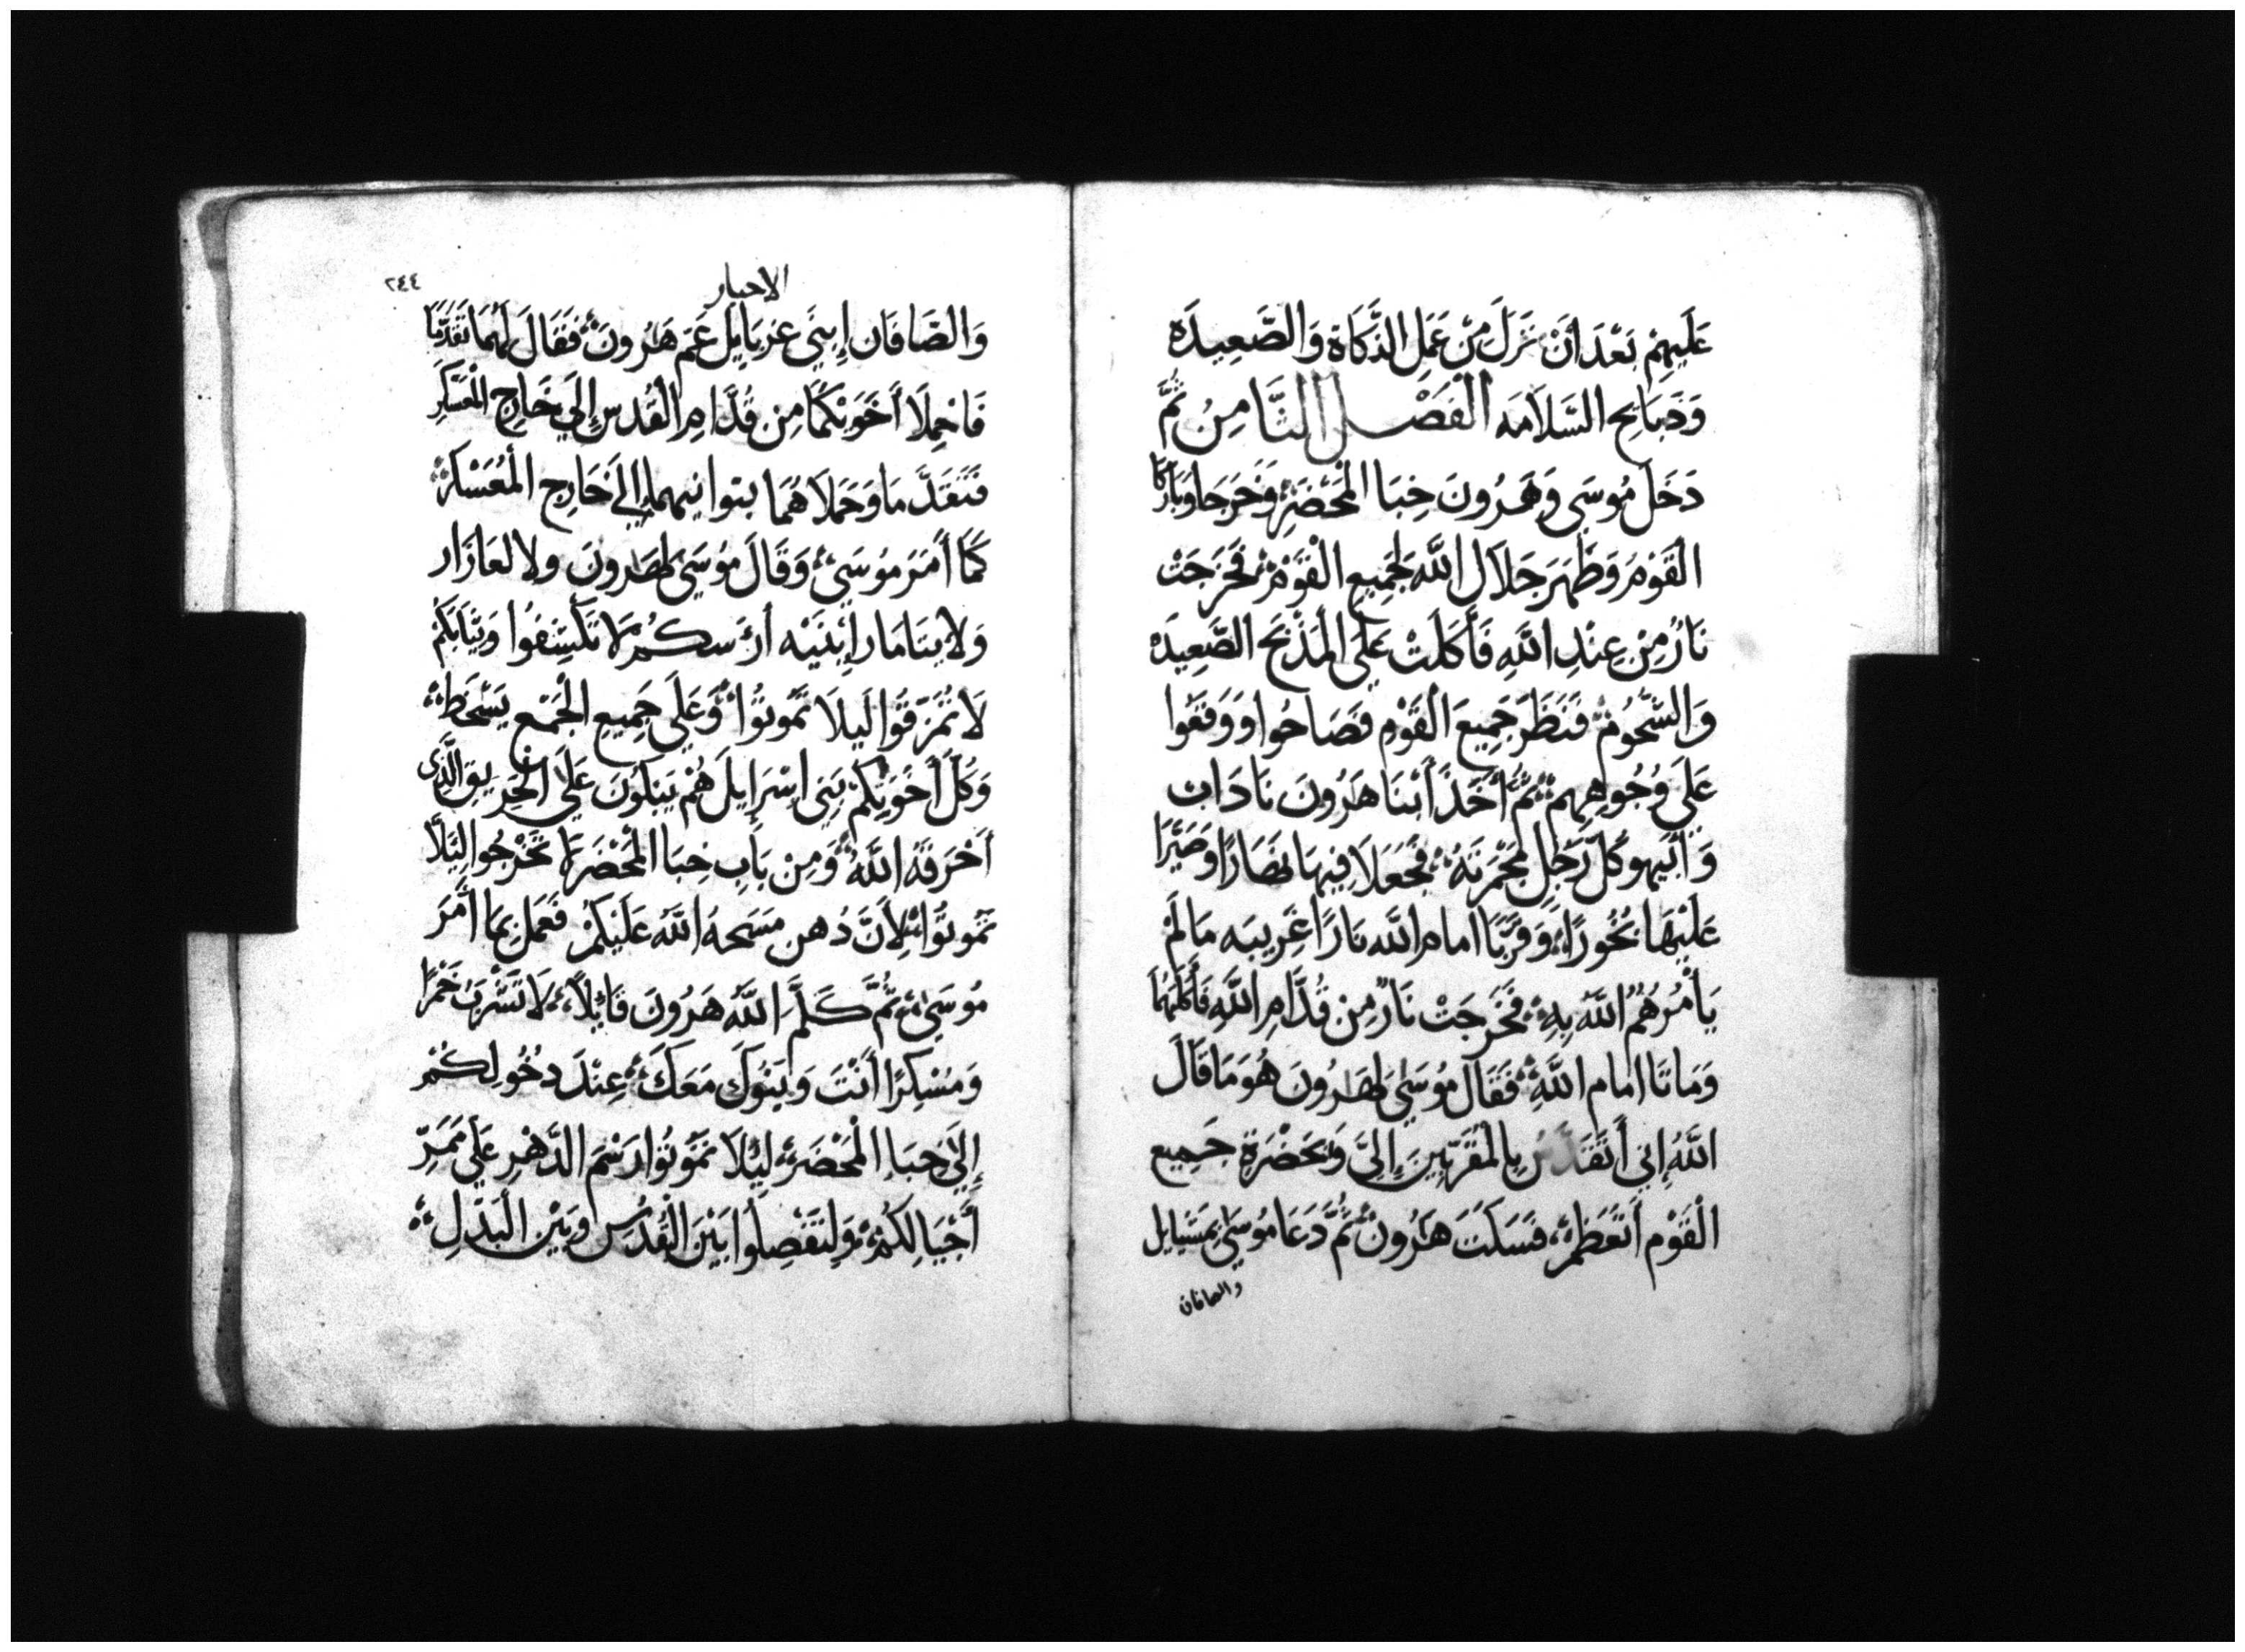 عَلَيهِمْ بَعْدَ أَنْ نَزَلَ مِنْ عَمَلِ الذَّكَاةِ وَالصَّعِيدَه
وَذَبَايِح السَّلَامَه الْفَصْل الثَّامِنُ ثُمَّ
دَخَلَ مُوسَى وَهَرُونَ خِبَا الْمَحْضَرِ وَخَرَجَا وَبَارَكَا
الْقَوْمَ وَظَهَرَ جَلَالَ اللَّه لِجَمِيعِ الْقَوْمْ فَخَرَجَتْ
نَارُ مِنْ عِنْدِ اللَّهِ فَأَكَلَتْ عَلَى الْمَذْبَحَ الصَّعِيدَه
وَالشُّحُومْ فَنَظَرَ جَمِيعَ الْقَوْمِ فَصَاحُوا وَوَقَعُوا
عَلَى وُجُوهِهِمْ ثُمَّ أَخَذَ أَبْنَا هَرُونَ نَادَاب
وَأَبِيهو كُلَّ رَجُلٍ مَجْمَرَتَهُ فَجَعَلَا فِيهَا نَارًا وَصَيَّرَا
عَلَيْهَا بُخُورًا وَقَرَّبَا امام اللَّه نَارًا غَرِيبَه مَا لَمْ
يَأْمُرْهُمُ اللَّه بِهِ فَخَرَجَتْ نَارٌ مِن قُدَّامِ اللَّهِ فَأَكَلَتْهُمَا
وَمَاتَا امام اللَّهِ فَقَالَ مُوسَى لِهَرُونَ هُوَ مَا قَالَ
اللَّهُ إِنِي أَتَقَدَّسُ بِالْمُقَرَّبِينَ إِلَىَّ وَبِحَضْرَةِ جَمِيع
الْقَوْم أَتَعَظَّمْ فَسَكَتَ هَرُونْ ثُمَّ دَعَا مُوسَى بِمَشَايل
والصافان
الاحبار
٢٤٤
وَالصَّافَان إِبْنَي عَزيَايل عَم هَرُونَ فَقَالَ لَهُمَا تَقَدَّمَا
فَاحْمِلَا أَخَوَيْكُمَا مِن قُدَّامِ الْقُدس إِلَى خَارِجِ الْمَعَسْكَرِ
فَتَقَدَّمَا وَحَمَلَاهُمَا بتوانيهما إِلي خَارِجِ الْمُعَسْكَر
كَمَا أَمَرَ مُوسَي وَقَالَ مُوسَي لِهَرونَ ولالعَازَار
وَلايتَامَار إِبْنَيْه ارَسكُمْ لَا تَكْشِفُوا وَثِيَابَكُمْ
لَا تُمَزِّقُوا لَيلَا تَمُوتُوا وَعَلَي جَمِيعِ الْجَمْع يَسْخَطْ
وَكُلَّ أَخَوَيكمْ بَنِي اسْرَايلَ هُمْ يَبْكُونَ عَلَي الْحَرِيقِ الَّذِى
أَحْرَقَهُ اللَّهُ وَمِنْ بَابِ خِبَا الْمَحْضَر لَا تَخْرُجُوا لِيَلَّا
تَمُوتُوا لِأَنَّ دُهن مَسَحهُ اللَّه عَلَيْكُمْ فَعَمَل بِمَا أَمَرَ
مُوسَي ثُمَّ كَلَّمَ اللَّهُ هَرُونَ قَايلاً لَا تَشْرَبْ خَمْرًا
وَمُسْكِرًا أَنْتَ وَبَنُوكَ مَعَكَ عِنْدَ دخُولِكُمْ
إِلَي خِبَا الْمَحْضَر لِيَلَا تَمُوتُوا رَسْمَ الدَّهْرِ عَلَي مَمَرِّ
أَجْيَالِكُمْ وَلِتَفْصِلُوا بَيْنَ الْقُدس وَبَيْن الْبَدْلِ